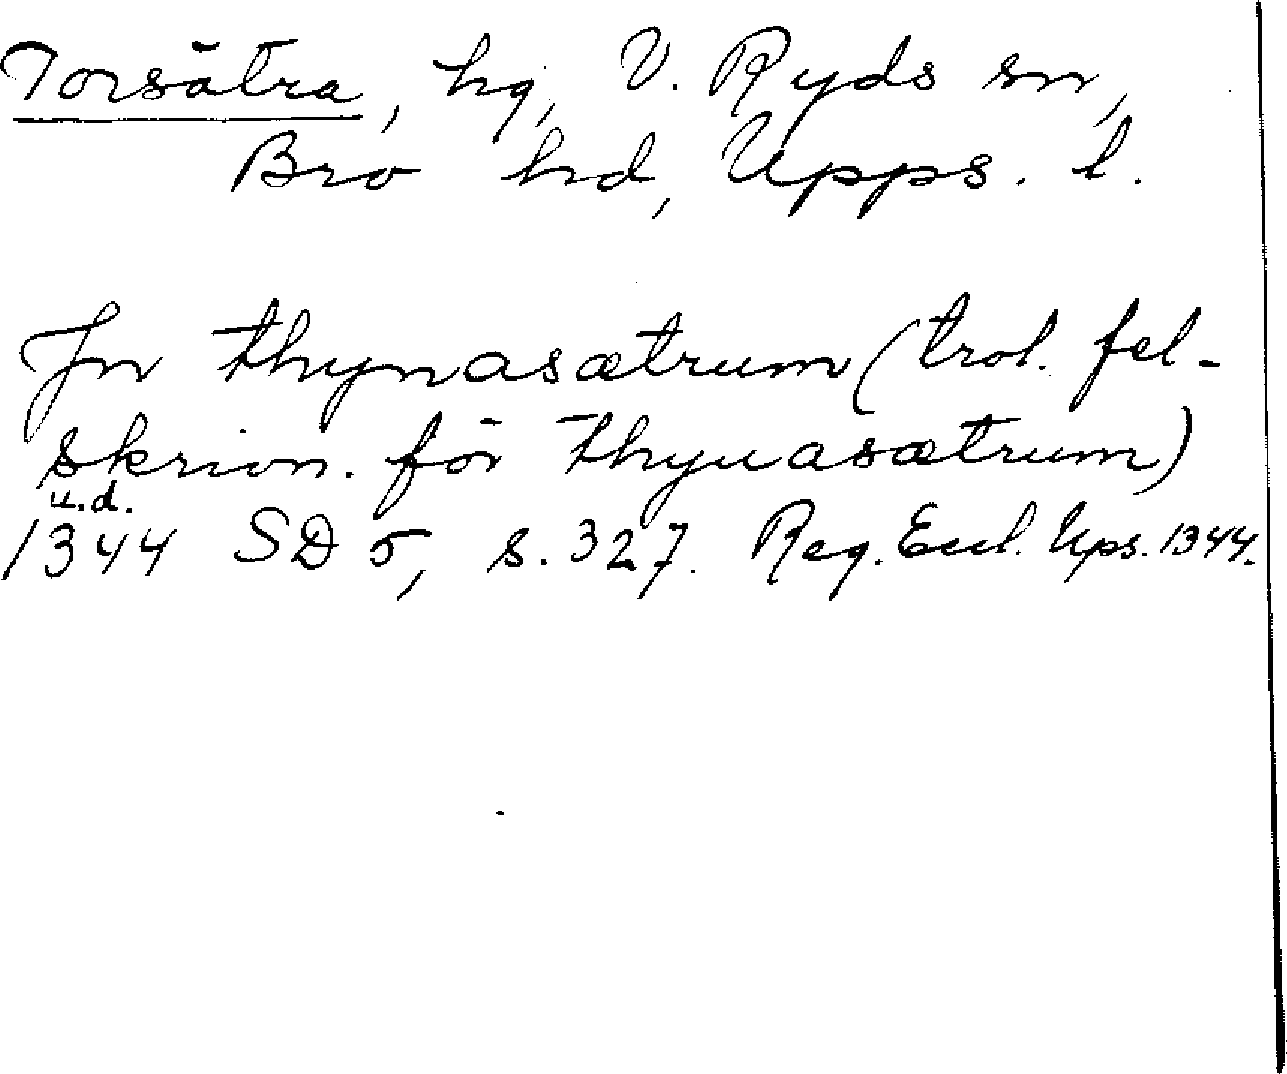 Torsätra, hg, V. Ryds sn,
Bro hd, Upps. l.
Jn thynasætrum (trol. fel-
skrivn. för thyuasætrum)
u.d.
1344 SD 5, s. 327. Reg. Eccl. Ups. 1344.